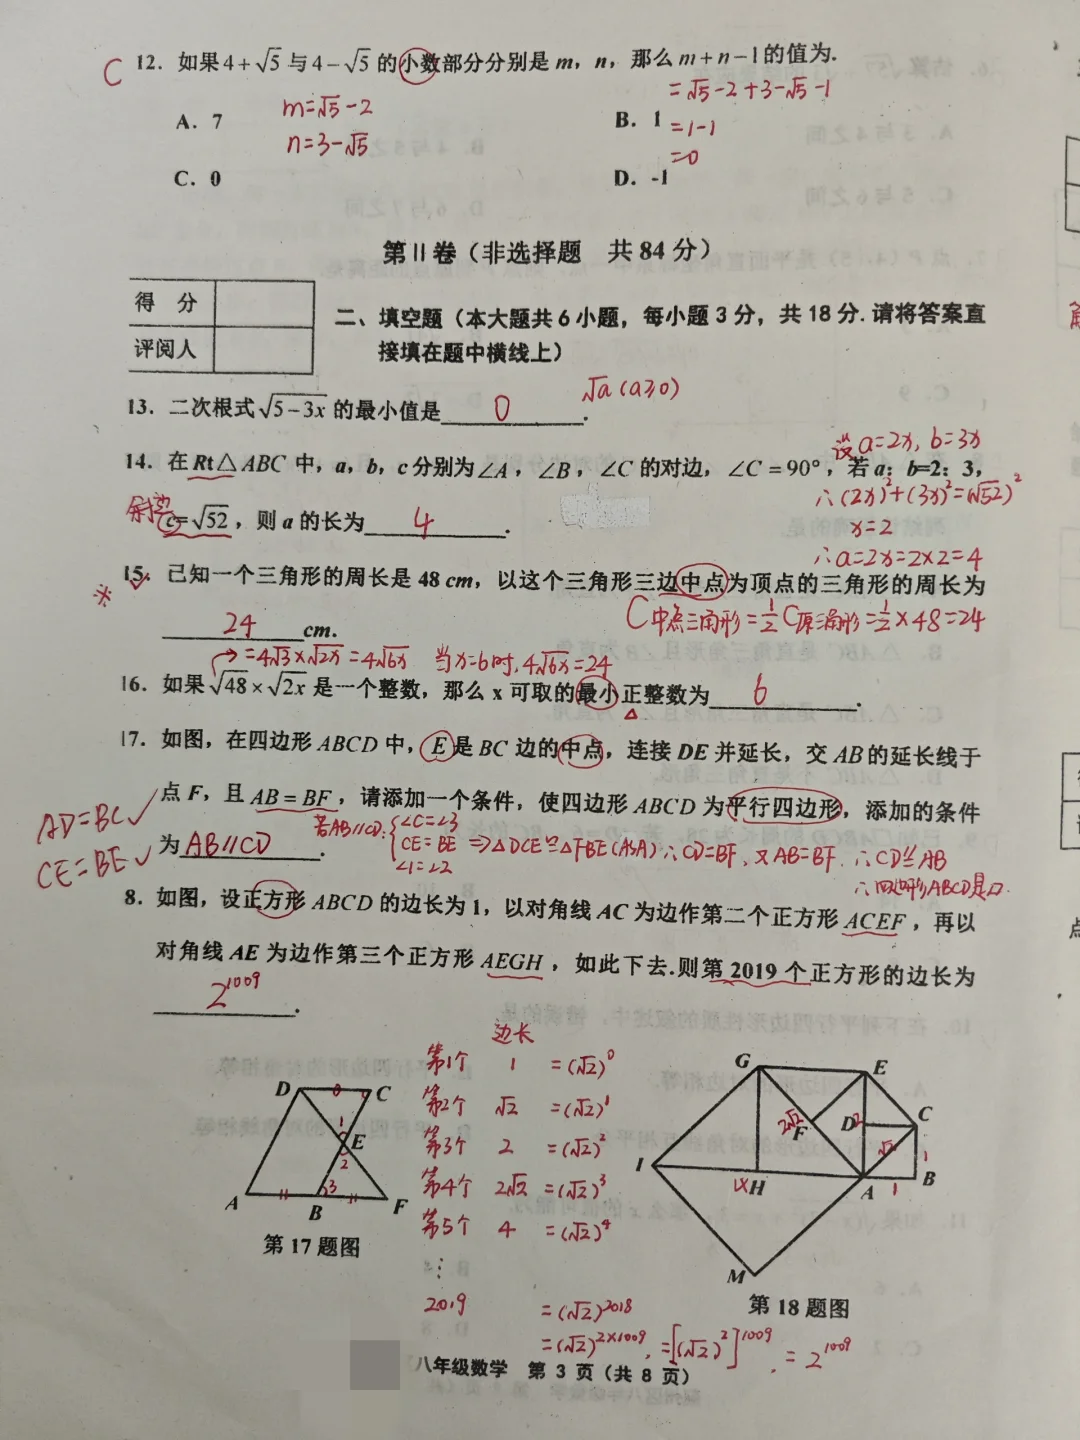 C 12. 如果4+√5与4-√5的小数部分分别是m, n, 那么m+n-1的值为.
=√5-2+3-√5-1
A. 7 m=√5-2 B. 1 =1-1
n=3-√5 =0
C. 0 D. -1
第Ⅱ卷（非选择题 共84分）
得 分
评阅人
二、填空题（本大题共6小题，每小题3分，共18分.请将答案直
接填在题中横线上）
√a (a≥0)
13. 二次根式√5-3x的最小值是 0 .
设a=2x, b=3x
14. 在Rt△ABC中，a，b，c分别为∠A，∠B，∠C的对边，∠C=90°，若a：b=2：3，
∴(2x)²+(3x)²=(√52)²
斜边 c=√52，则a的长为 4 .
x=2
∴a=2x=2×2=4
※ 15. 已知一个三角形的周长是48cm，以这个三角形三边中点为顶点的三角形的周长为
24 cm.
C中点三角形=½C原三角形=½×48=24
=4√3×√2x=4√6x 当x=6时,4√6x=24
16. 如果√48×√2x是一个整数，那么x可取的最小正整数为 6 .
17. 如图，在四边形ABCD中，E是BC边的中点，连接DE并延长，交AB的延长线于
点F，且AB=BF，请添加一个条件，使四边形ABCD为平行四边形，添加的条件
AD=BC✓
CE=BE✓
为 AB∥CD .
若AB∥CD:{∠C=∠3
CE=BE ⇒△DCE≌△FBE(ASA)∴CD=BF,又AB=BF.∴CD⫽AB
∠1=∠2
∴四边形ABCD是▱.
8. 如图，设正方形ABCD的边长为1，以对角线AC为边作第二个正方形ACEF，再以
对角线AE为边作第三个正方形AEGH，如此下去.则第2019个正方形的边长为
2¹⁰⁰⁹ .
边长
第1个 1 =(√2)⁰
第2个 √2 =(√2)¹
第3个 2 =(√2)²
第4个 2√2 =(√2)³
第5个 4 =(√2)⁴
⋮
2019 =(√2)²⁰¹⁸
=(√2)²ˣ¹⁰⁰⁹. =[(√2)²]¹⁰⁰⁹. =2¹⁰⁰⁹
D C
1
E
2
A B 3 F
第17题图
G E
2√2 F D 2 C
√2 1
I H A 1 B
M
第18题图
八年级数学 第3页（共8页）